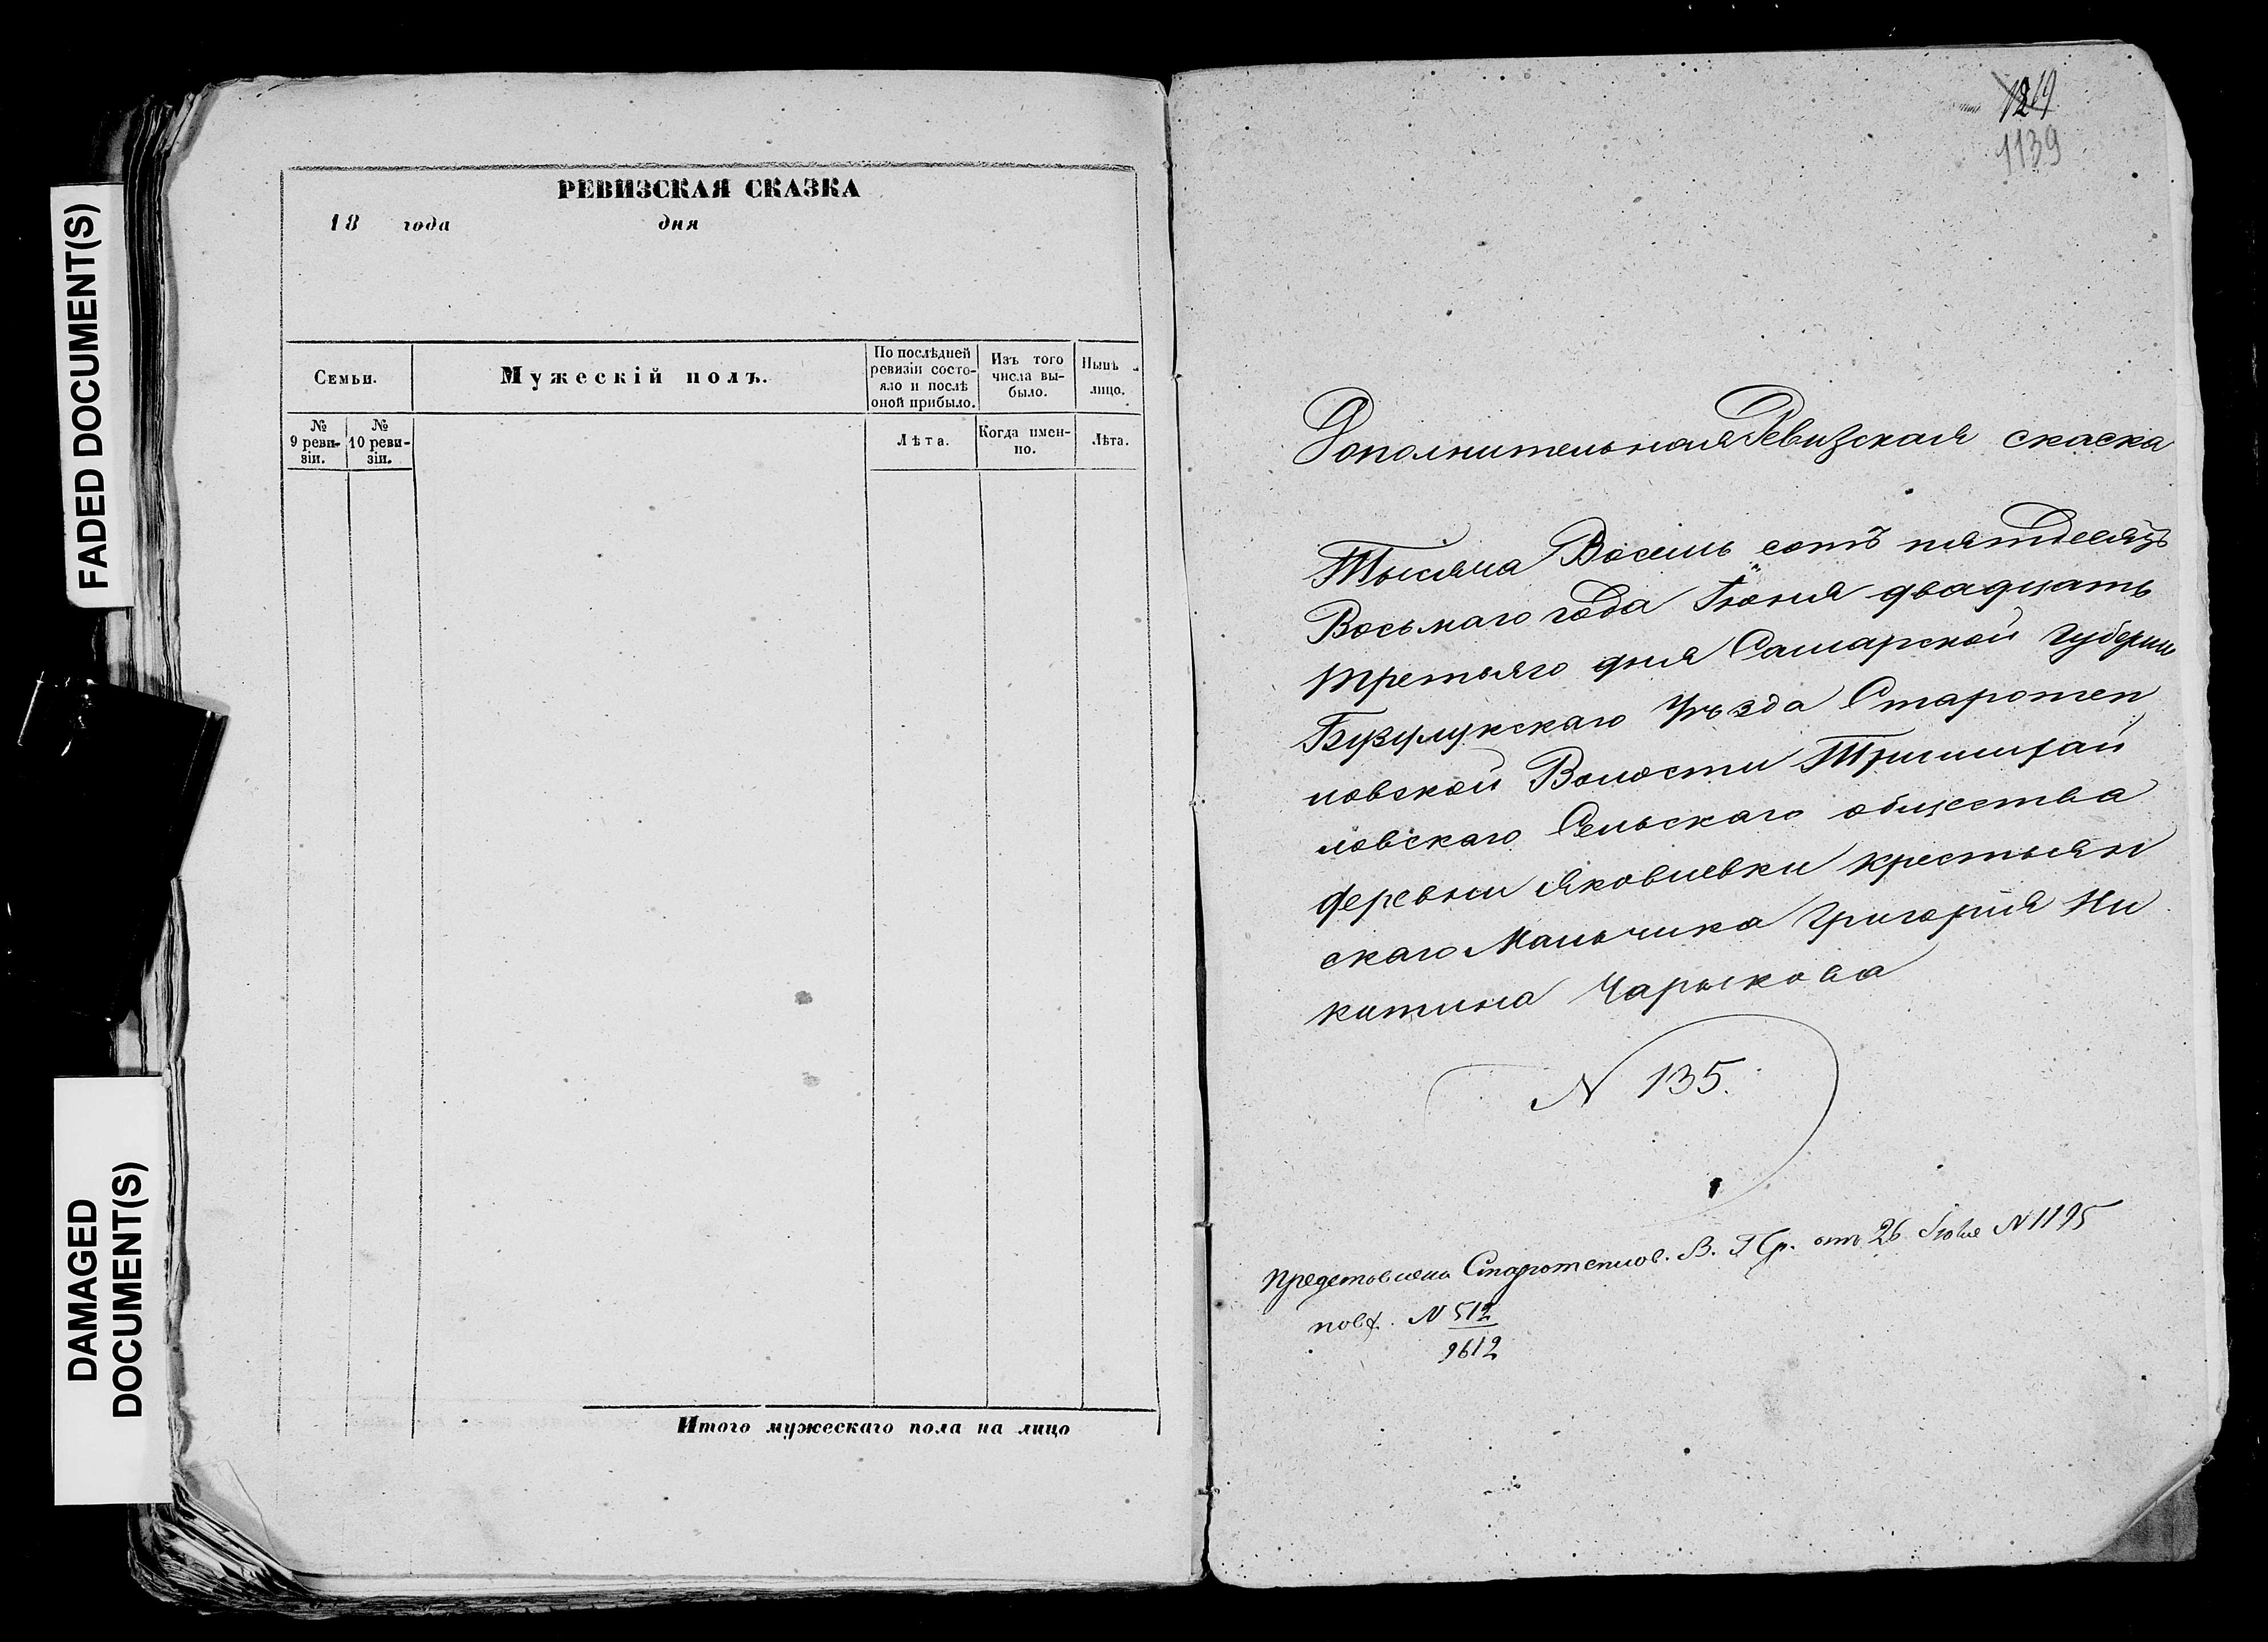 FADED DOCUMENT(S)
DAMAGED
DOCUMENT(S)
РЕВИЗСКАЯ СКАЗКА
18 года дня
Семьи.
Мужескій полъ.
По послѣдней
ревизіи состо-
яло и послѣ
оной прибыло.
Изъ того
числа вы-
было.
Нынѣ
лицо.
№
9 реви-
зіи.
№
10 реви-
зіи.
Лѣта.
Когда имен-
но.
Лѣта.
Итого мужескаго пола на лицо
1139
Дополнительная Ревизская скаска
Тысяча Восемь сотъ пятдесятъ
Восьмаго года Іюня двадцать
третьяго дня Самарской Губерніи
Бузулукскаго Уѣзда Старотеп
ловской Волости Тримихай
ловскаго Сельскаго общества
деревни Яковлевки крестьян
скаго Мальчика Григорія Ни
китина Чарыкова
N 135.
Представлена Старотеплов. В. Пр. отъ 26 Іюня N 1195
N 512
9612